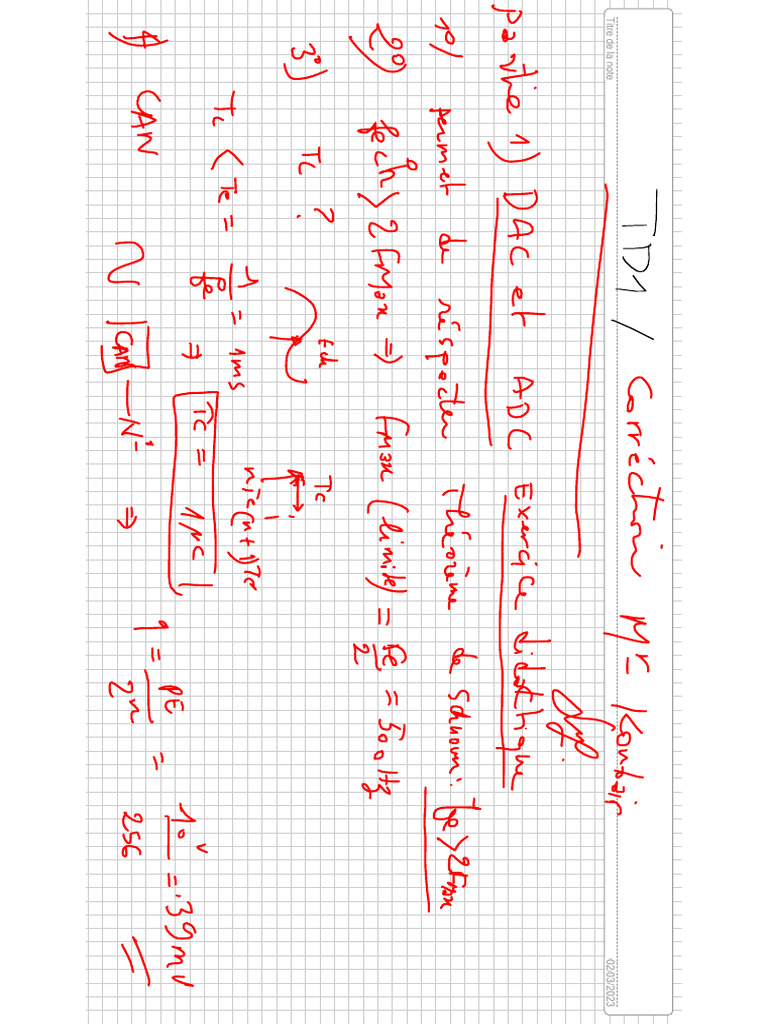 Titre de la note
02/03/2023
TD1/ Corréction Mr
partie 1) DAC et ADC Exercice didactique
1°/ permet de réspecter théorème de Schnoun: fe > 2Fmax
2°) féch > 2Fmax => Fmax (limite) = fe/2 = 500Hz
3°) Tc ?
Tc
nTe (n+1)Te
Tc < Te = 1/fe = 1ms => Tc = 1µc
1) CAN CAN N° => q = PE/2n = 10v/256 = 39mv